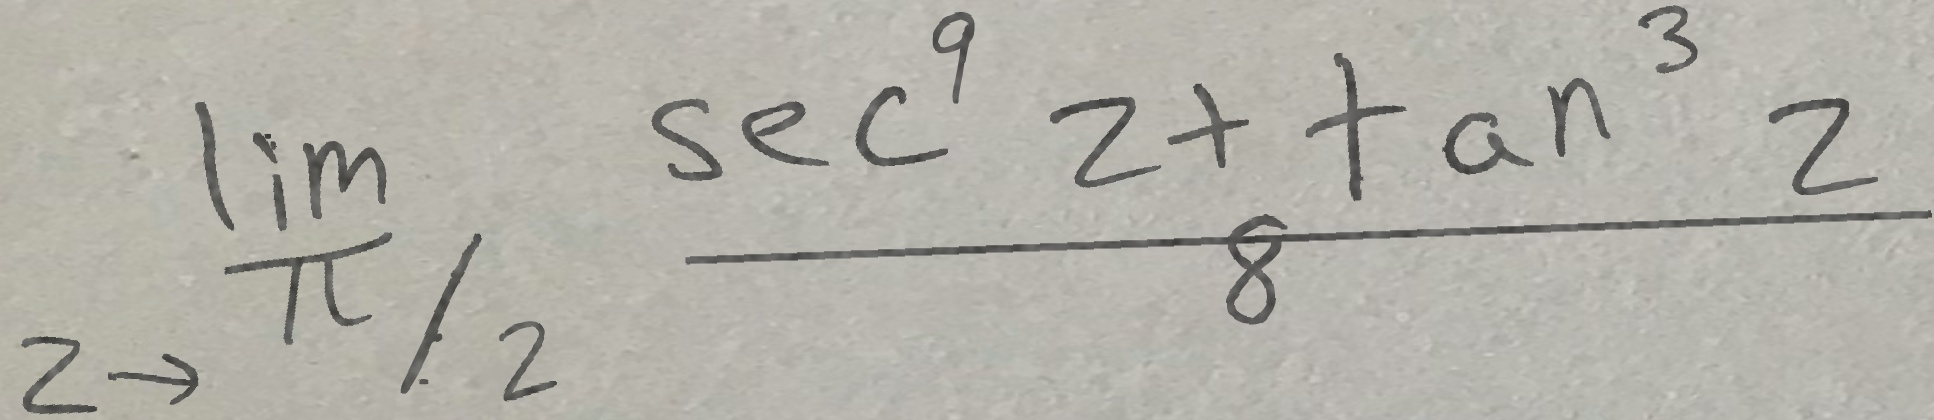 lim z → π/2 (sec⁹ z + tan³ z) / 8